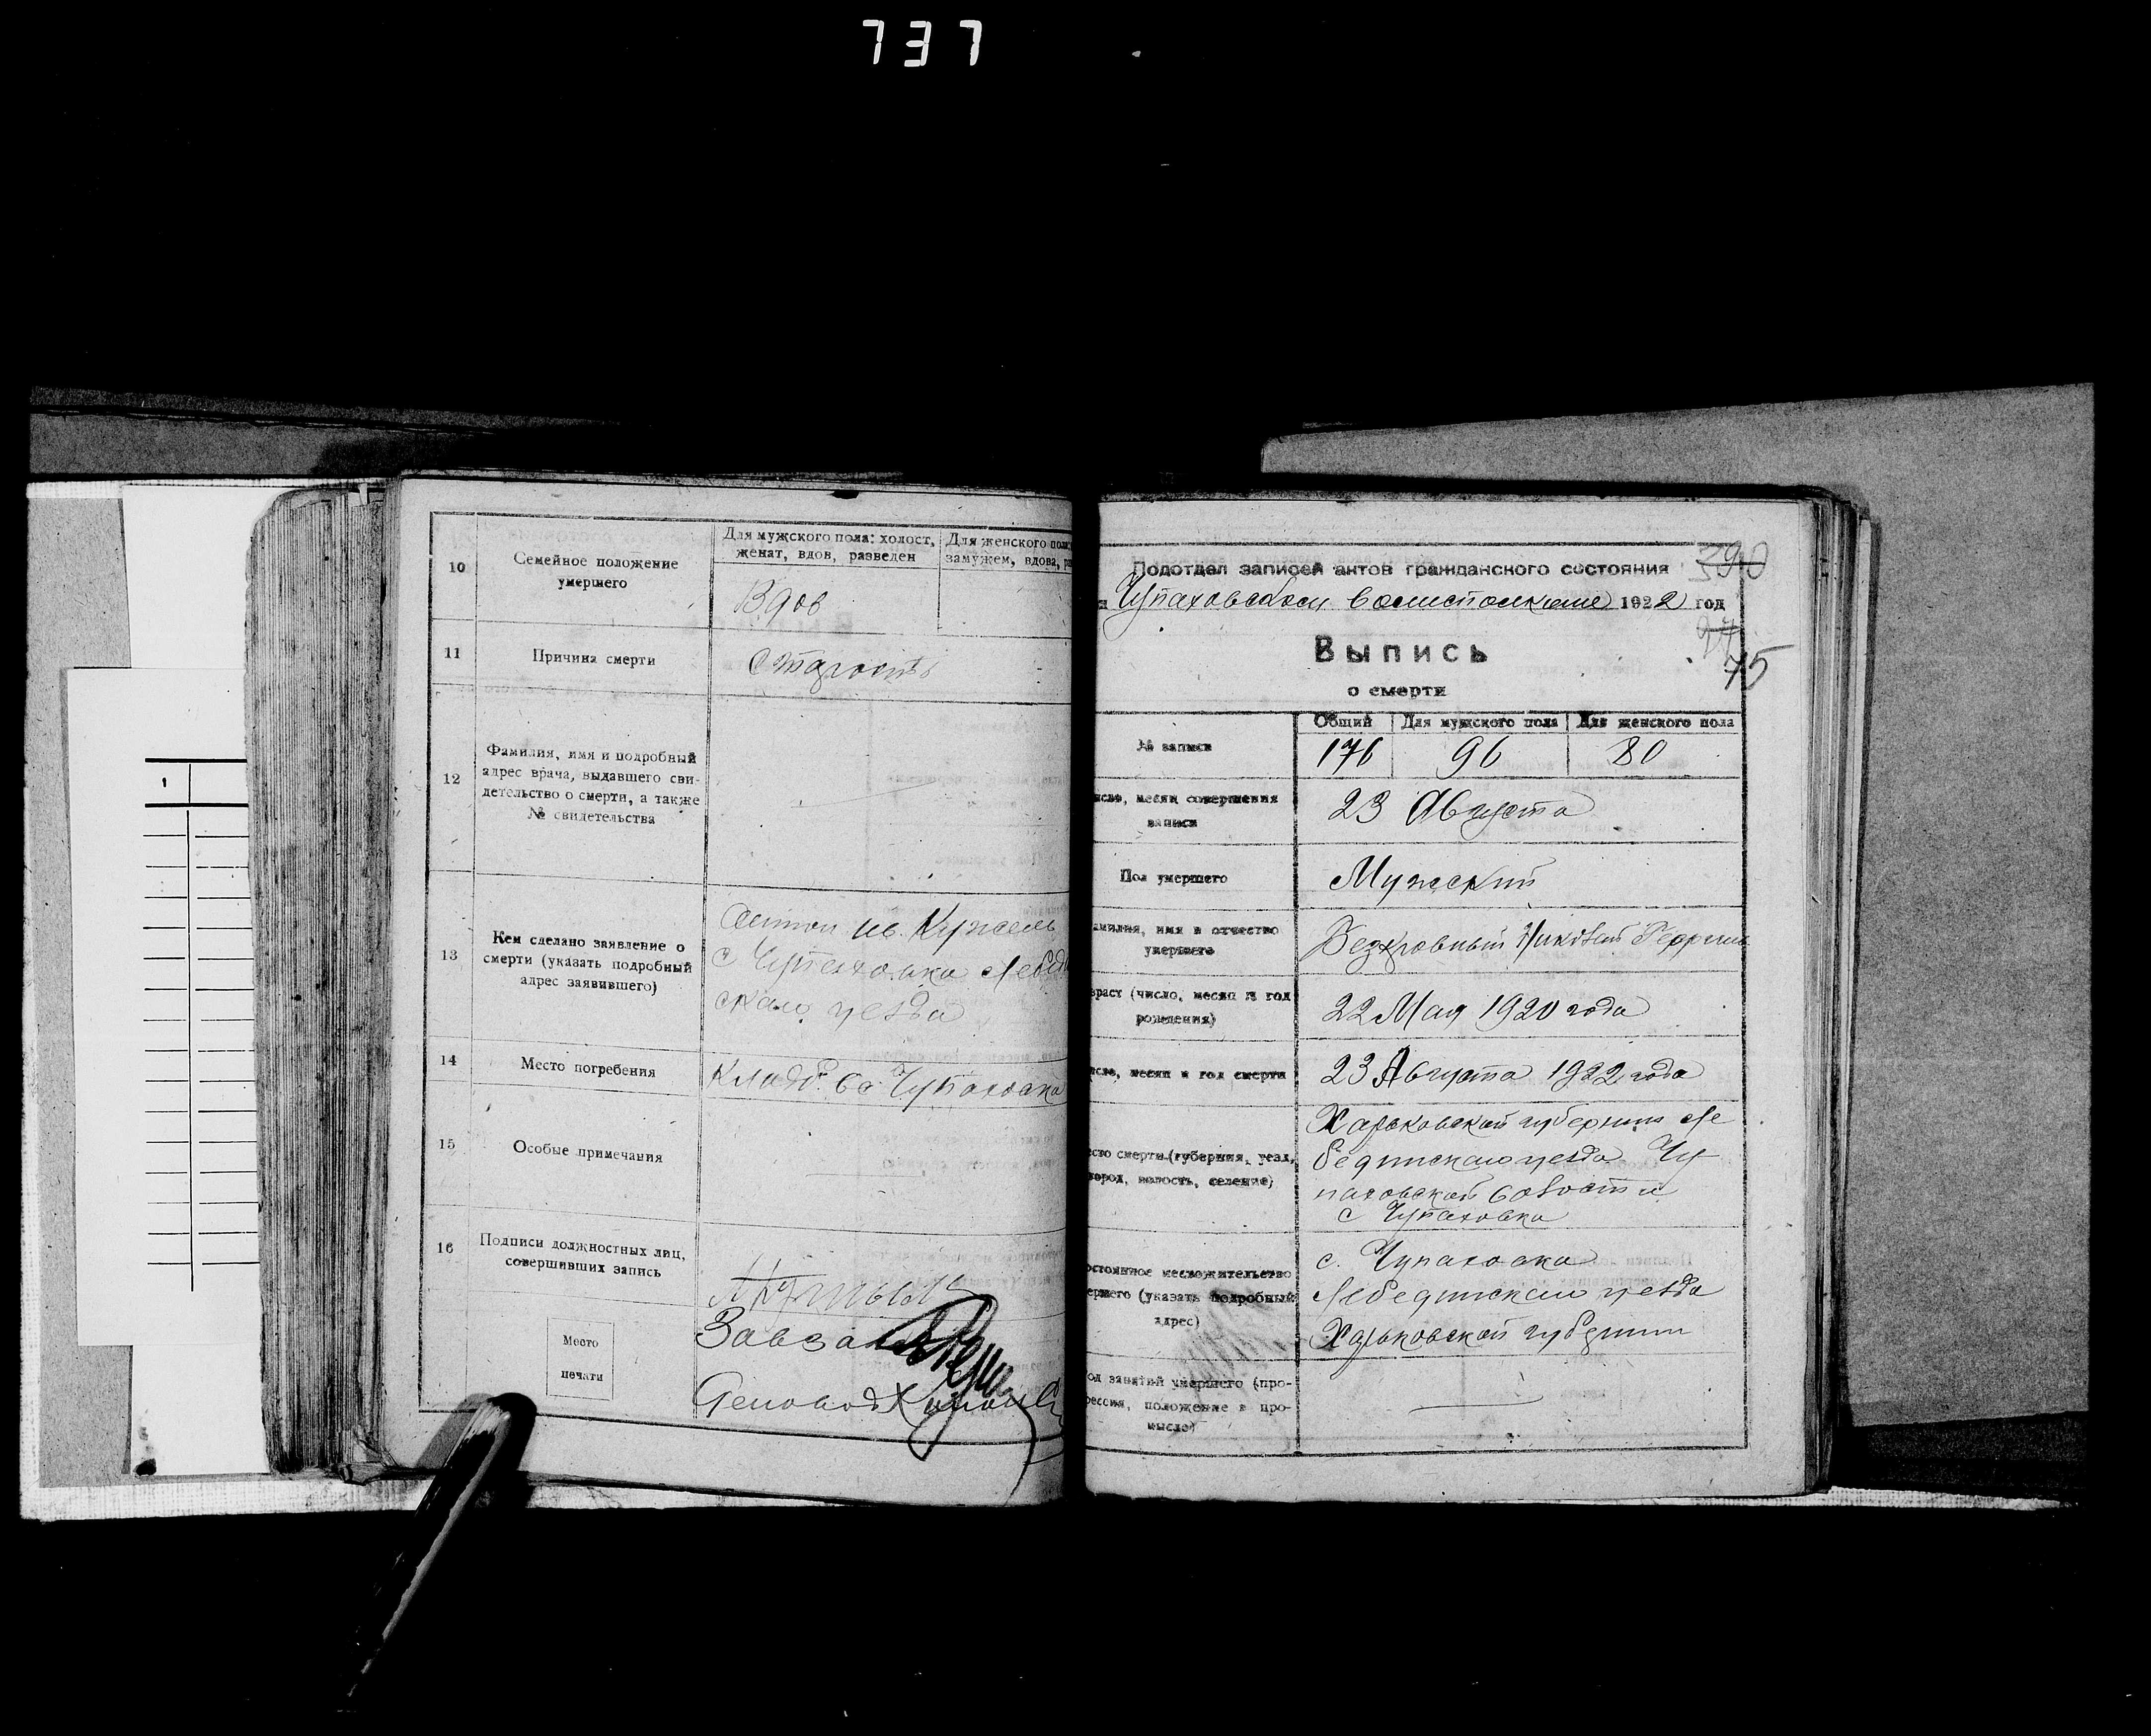 737
10
Семейное положение
умершего
Для мужского пола: холост,
женат, вдов, разведен
Для женского пола:
замужем, вдова,
Вдов
11
Причина смерти
Старость
12
Фамилия, имя и подробный
адрес врача, выдавшего сви-
детельство о смерти, а также
№ свидетельства
13
Кем сделано заявление о
смерти (указать подробный
адрес заявившего)
Антон ив. Кужель
с Чупаховка Лебед
ского уезда
14
Место погребения
Кладб. в с. Чупаховка
15
Особые примечания
16
Подписи должностных лиц,
совершивших запись
Место
печати
Подотдел записей актов гражданского состояния
390
Чупаховском волисполкоме 1922 год
75
Выпись
о смерти
№ записи
Общий
Для мужского пола
Для женского пола
176
96
80
исло, месяц совершения
записи
23 Августа
Пол умершего
Мужский
амилия, имя и отчество
умершего
Николай
зраст (число, месяц и год
рождения)
22 Мая 1920 года
исло, месяц и год смерти
23 Августа 1922 года
есто смерти (губерния, уезд,
город, волость, селение)
Харьковской губернии Ле
бединского уезда Чу
паховской волости
с Чупаховка
остоянное местожительство
ершего (указать подробный
адрес)
с. Чупаховка
Лебединского уезда
Харьковской губернии
од занятий умершего (про-
фессия, положение в про-
мысле)